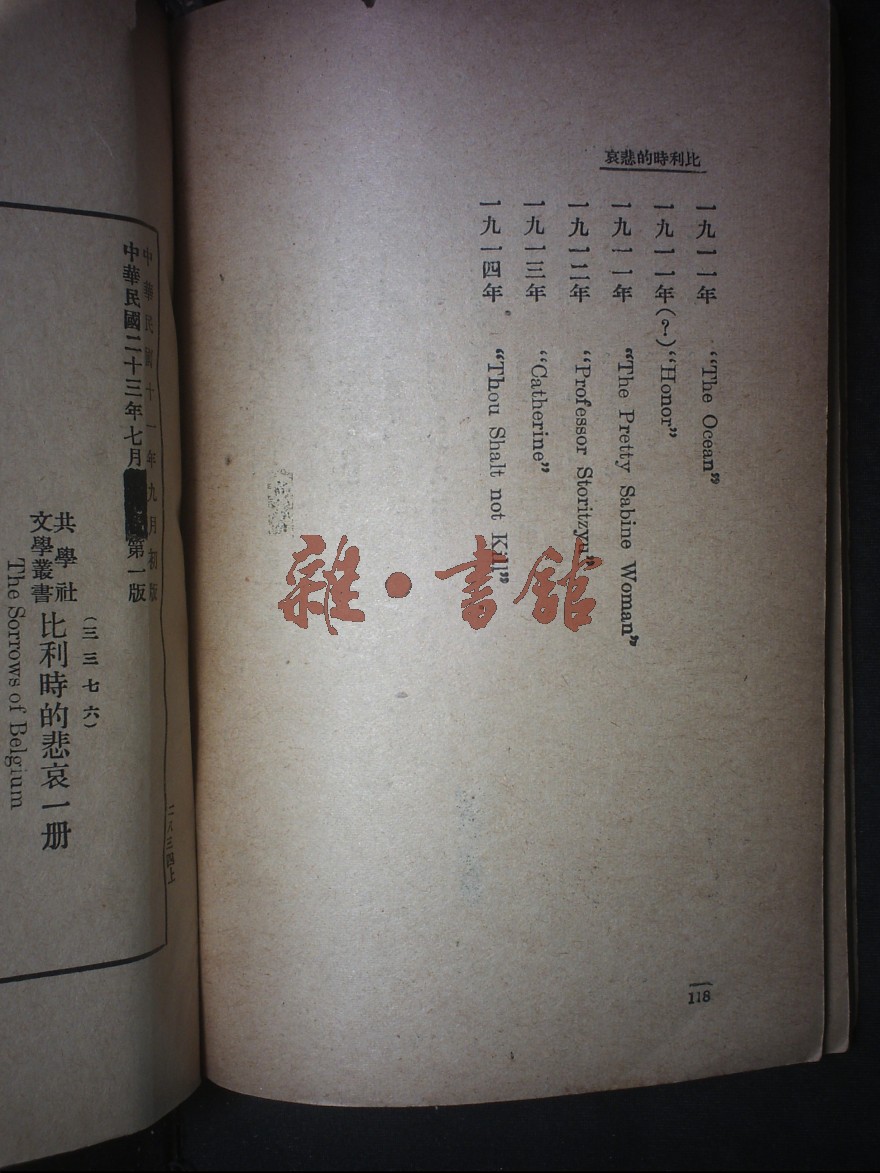 比利時的悲哀
一九一一年 “The Ocean”
一九一一年(?) “Honor”
一九一一年 “The Pretty Sabine Woman”
一九一二年 “Professor Storitzyu”
一九一三年 “Catherine”
一九一四年 “Thou Shalt not Kill”
118
雜·書館
二八三四上
中華民國十一年九月初版
中華民國二十三年七月 第一版
(三三七六)
共學社
文學叢書
比利時的悲哀一册
The Sorrows of Belgium